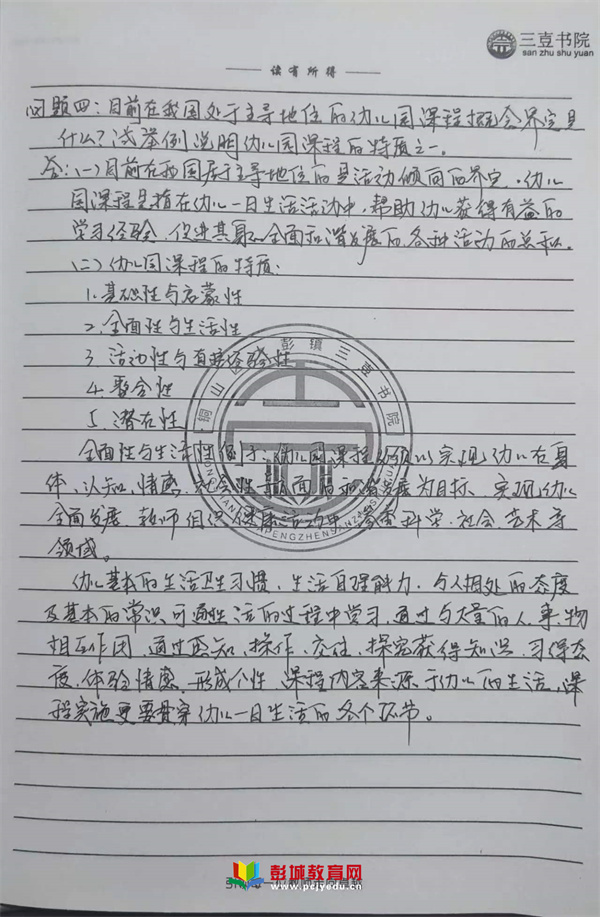 三壹书院
san zhu shu yuan
读有所得
问题四:目前在我国处于主导地位的幼儿园课程概念界定是
什么?试举例说明幼儿园课程的特质之一。
答:(一)目前在我国居于主导地位的是活动倾向的界定。幼儿
园课程是指在幼儿一日生活活动中,帮助幼儿获得有益的
学习经验,促进其身心全面和谐发展的各种活动的总和。
(二)幼儿园课程的特质:
1.基础性与启蒙性
2.全面性与生活性
3.活动性与直接经验性
4.整合性
5.潜在性
全面性与生活性例子:幼儿园课程必须以实现幼儿在身
体、认知、情感、社会性等方面的和谐发展为目标,实现幼儿
全面发展。教师组织健康活动中,渗透科学、社会、艺术等
领域。
幼儿基本的生活卫生习惯、生活自强能力、与人相处的态度
及基本的常识可通过生活的过程中学习,通过与大量的人、事、物
相互作用,通过感知、操作、交往、探究获得知识、习得态
度、体验情感、形成个性。课程内容来源于幼儿的生活,课
程实施更要贯穿幼儿一日生活的各个环节。
铜山区大彭镇三壹书院
彭城教育网
www.pcjyedu.cn